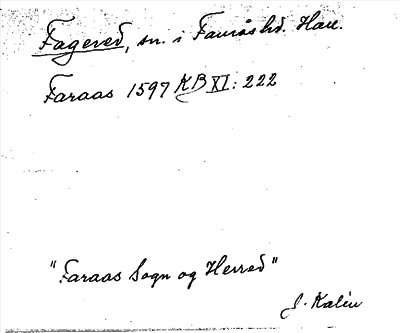 Fagered, sn. i Faurås hd. Hall.
Faraas 1597 KB XI: 222
"Faraas Sogn og Herred"
J. Kalén